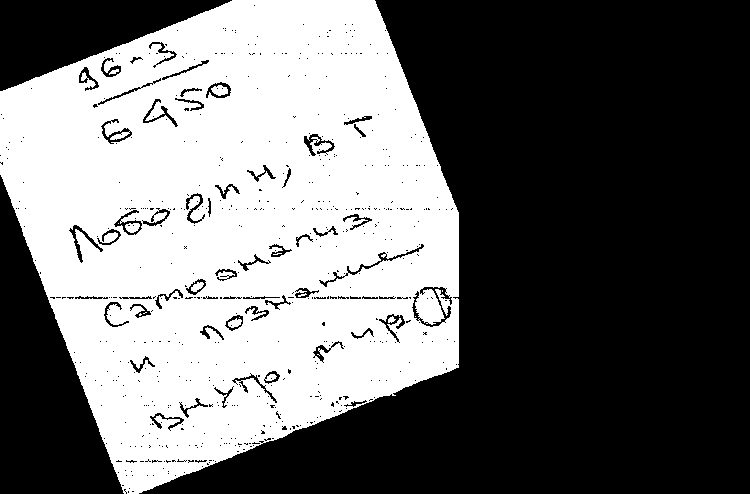 96-3
6450
Лободин, В Т
Самоанализ
и познание
внутр. мира